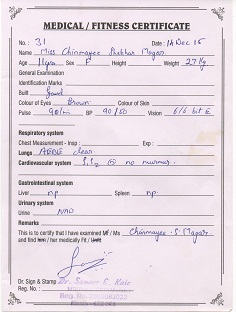 MEDICAL / FITNESS CERTIFICATE
No. : 31 Date : 14 Dec 15
Name Miss Chinmayee Shekhar Magar.
Age 11yrs Sex F Height Weight 27 Kg
General Examination
Identification Marks
Built Good
Colour of Eyes Brown Colour of Skin
Pulse 90/m BP 90/50 Vision 6/6 bit E
Respiratory system
Chest Measurement - Insp : Exp :
Lungs AEBE clear
Cardiovascular system S1S2 no murmur.
Gastrointestinal system
Liver NP Spleen NP.
Urinary system
Urine NAD
Remarks
This is to certify that I have examined Mr / Ms Chinmayee . S Magar
and find him / her medically Fit / Unfit
Dr. Sign & Stamp Dr. Sameer E. Kale
Reg. No.
Reg. No.